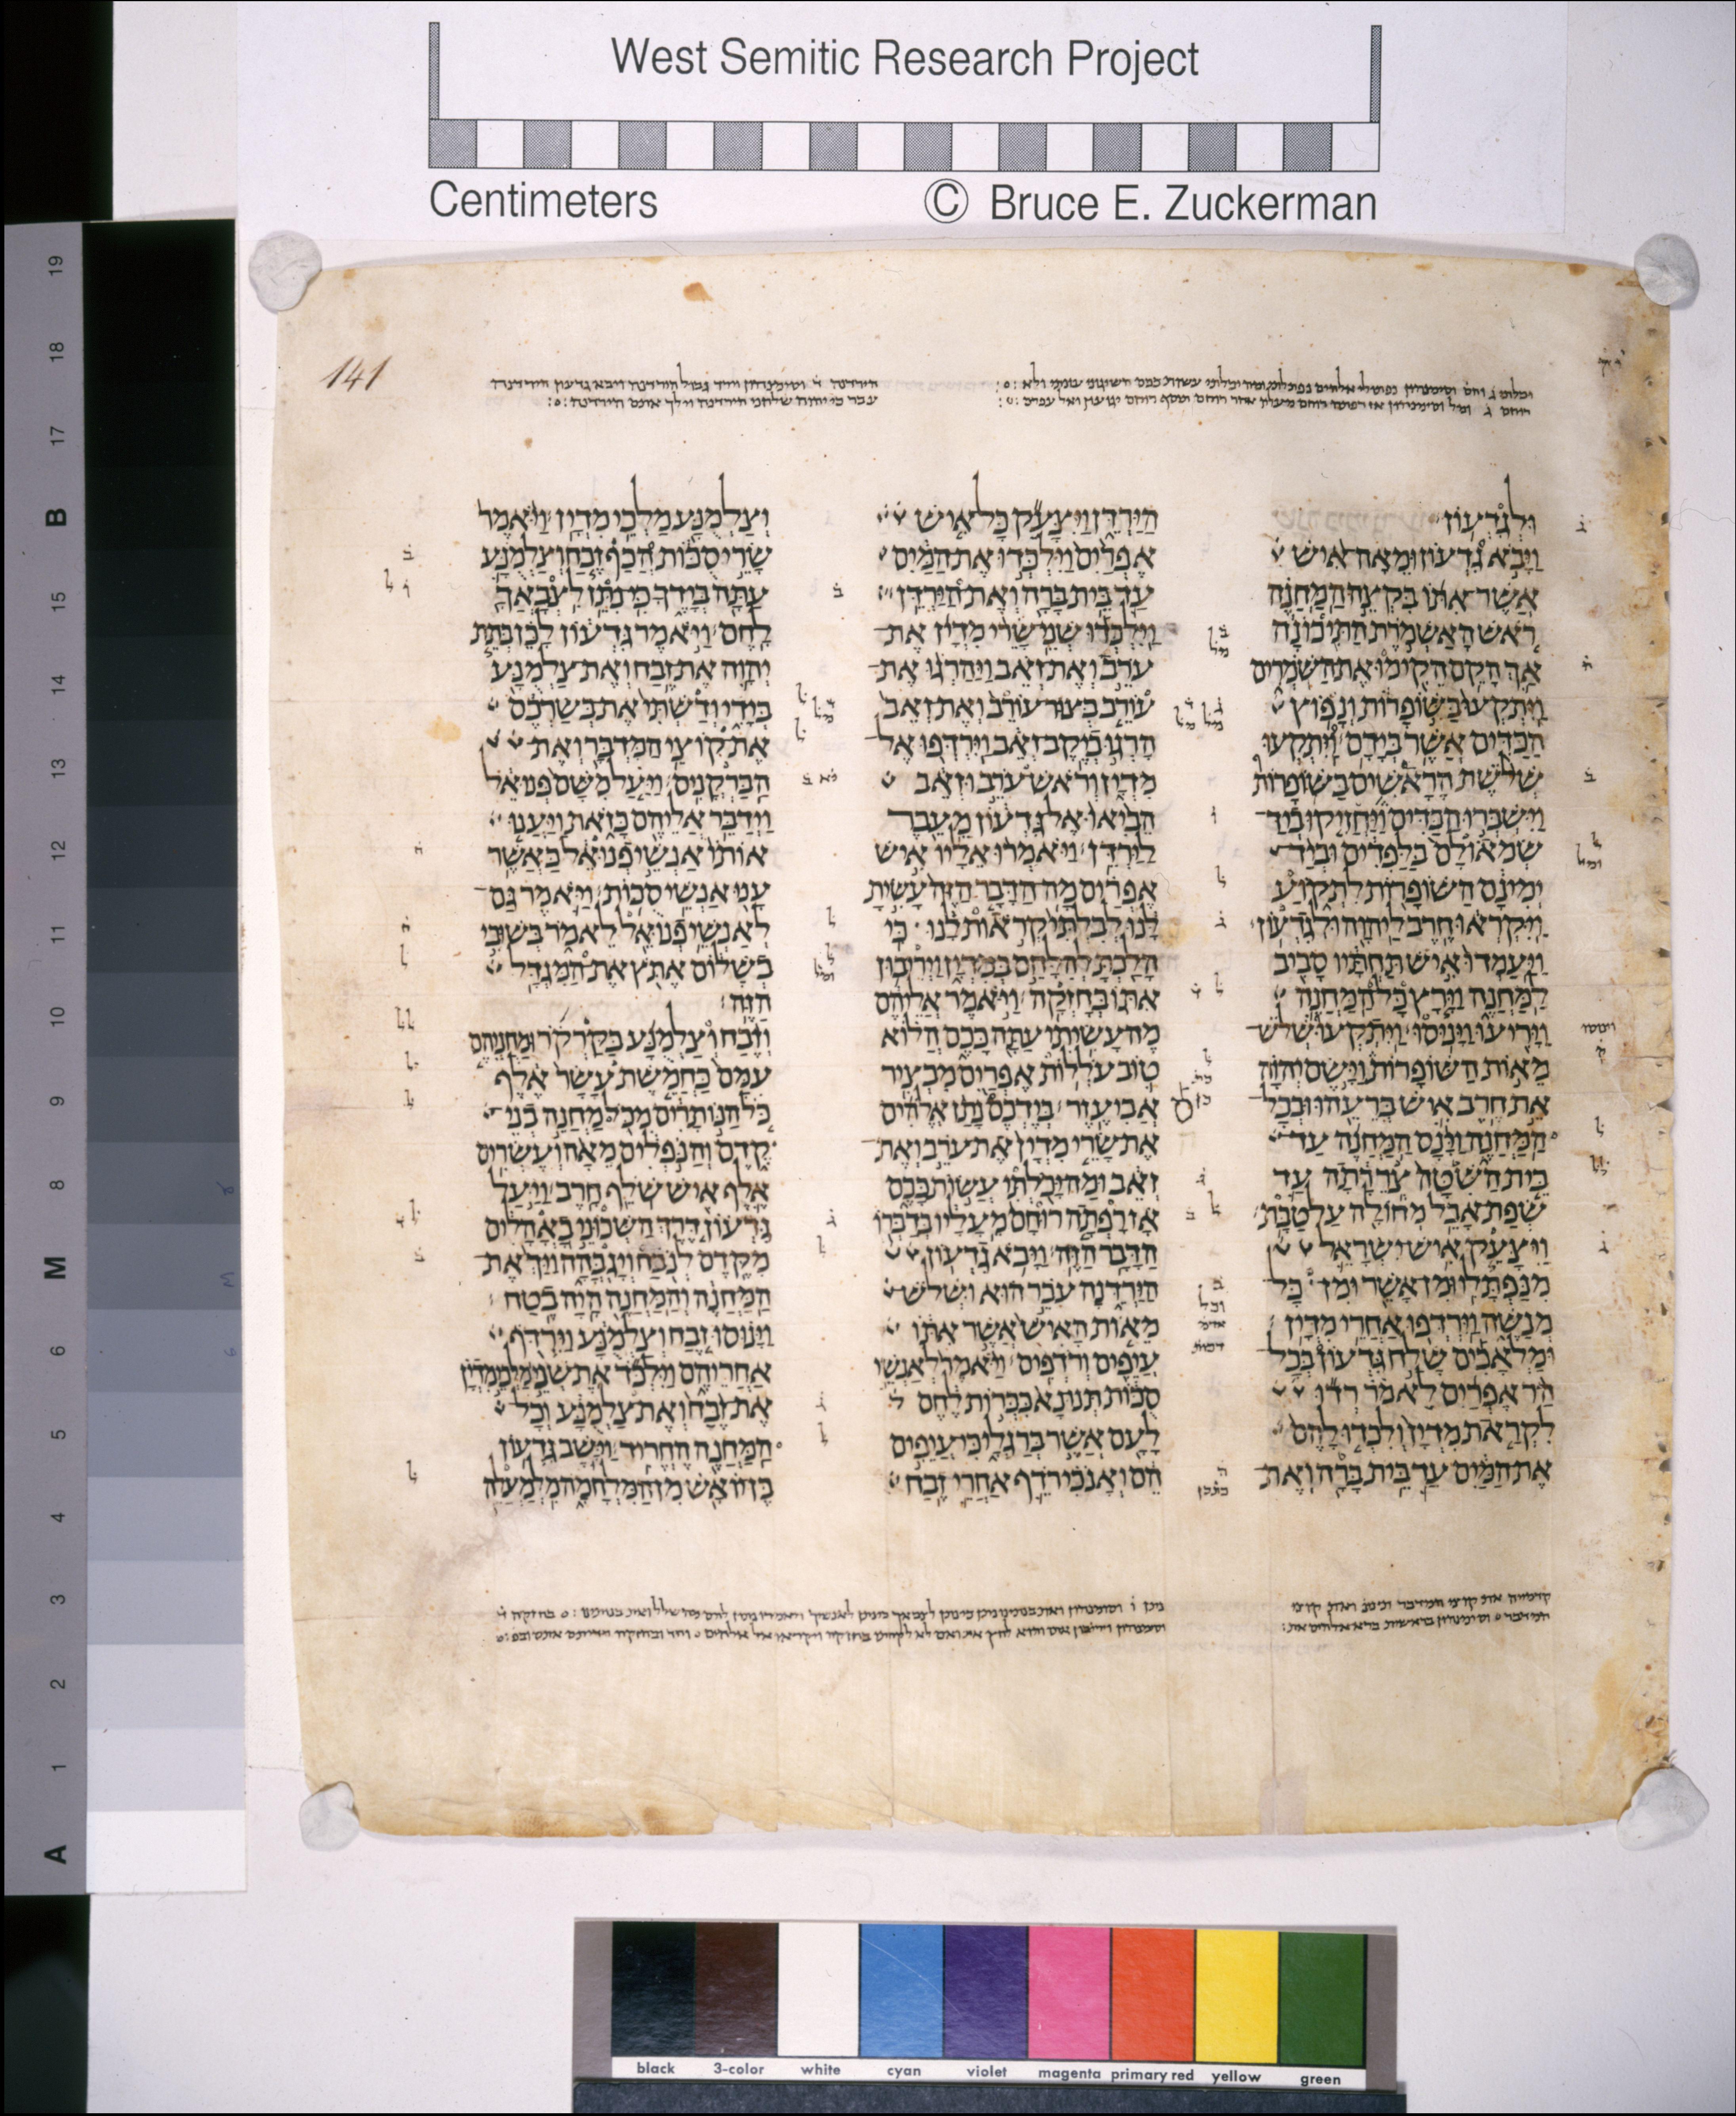 West Semitic Research Project
Centimeters © Bruce E. Zuckerman
141
וּלְגִדְעוֹן
וַיָּבֹא גִדְעוֹן וּמֵאָה אִישׁ
אֲשֶׁר אִתּוֹ בִּקְצֵה הַמַּחֲנֶה
רֹאשׁ הָאַשְׁמֹרֶת הַתִּיכוֹנָה
אַךְ הָקֵם הֵקִימוּ אֶת הַשֹּׁמְרִים
וַיִּתְקְעוּ בַּשּׁוֹפָרוֹת וְנָפוֹץ
הַכַּדִּים אֲשֶׁר בְּיָדָם וַיִּתְקְעוּ
שְׁלֹשֶׁת הָרָאשִׁים בַּשּׁוֹפָרוֹת
וַיִּשְׁבְּרוּ הַכַּדִּים וַיַּחֲזִיקוּ בְיַד
שְׂמֹאולָם בַּלַּפִּדִים וּבְיַד
יְמִינָם הַשּׁוֹפָרוֹת לִתְקוֹעַ
וַיִּקְרְאוּ חֶרֶב לַיהוָה וּלְגִדְעוֹן
וַיַּעַמְדוּ אִישׁ תַּחְתָּיו סָבִיב
לַמַּחֲנֶה וַיָּרָץ כָּל הַמַּחֲנֶה
וַיָּרִיעוּ וַיָּנִיסוּ וַיִּתְקְעוּ שְׁלֹשׁ
מֵאוֹת הַשּׁוֹפָרוֹת וַיָּשֶׂם יְהוָה
אֵת חֶרֶב אִישׁ בְּרֵעֵהוּ וּבְכָל
הַמַּחֲנֶה וַיָּנָס הַמַּחֲנֶה עַד
בֵּית הַשִּׁטָּה צְרֵרָתָה עַד
שְׂפַת אָבֵל מְחוֹלָה עַל טַבָּת
וַיִּצָּעֵק אִישׁ יִשְׂרָאֵל
מִנַּפְתָּלִי וּמִן אָשֵׁר וּמִן כָּל
מְנַשֶּׁה וַיִּרְדְּפוּ אַחֲרֵי מִדְיָן
וּמַלְאָכִים שָׁלַח גִּדְעוֹן בְּכָל
הַר אֶפְרַיִם לֵאמֹר רְדוּ
לִקְרַאת מִדְיָן וְלִכְדוּ לָהֶם
אֶת הַמַּיִם עַד בֵּית בָּרָה וְאֶת
הַיַּרְדֵּן וַיִּצָּעֵק כָּל אִישׁ
אֶפְרַיִם וַיִּלְכְּדוּ אֶת הַמַּיִם
עַד בֵּית בָּרָה וְאֶת הַיַּרְדֵּן
וַיִּלְכְּדוּ שְׁנֵי שָׂרֵי מִדְיָן אֶת
עֹרֵב וְאֶת זְאֵב וַיַּהַרְגוּ אֶת
עוֹרֵב בְּצוּר עוֹרֵב וְאֶת זְאֵב
הָרְגוּ בְיֶקֶב זְאֵב וַיִּרְדְּפוּ אֶל
מִדְיָן וְרֹאשׁ עֹרֵב וּזְאֵב
הֵבִיאוּ אֶל גִּדְעוֹן מֵעֵבֶר
לַיַּרְדֵּן וַיֹּאמְרוּ אֵלָיו אִישׁ
אֶפְרַיִם מָה הַדָּבָר הַזֶּה עָשִׂיתָ
לָּנוּ לְבִלְתִּי קְרֹאות לָנוּ כִּי
הָלַכְתָּ לְהִלָּחֵם בְּמִדְיָן וַיְרִיבוּן
אִתּוֹ בְּחָזְקָה וַיֹּאמֶר אֲלֵיהֶם
מֶה עָשִׂיתִי עַתָּה כָּכֶם הֲלוֹא
טוֹב עֹלְלוֹת אֶפְרַיִם מִבְצִיר
אֲבִיעֶזֶר בְּיֶדְכֶם נָתַן אֱלֹהִים
אֶת שָׂרֵי מִדְיָן אֶת עֹרֵב וְאֶת
זְאֵב וּמַה יָּכֹלְתִּי עֲשׂוֹת כָּכֶם
אָז רָפְתָה רוּחָם מֵעָלָיו בְּדַבְּרוֹ
הַדָּבָר הַזֶּה וַיָּבֹא גִדְעוֹן
הַיַּרְדֵּנָה עֹבֵר הוּא וּשְׁלֹשׁ
מֵאוֹת הָאִישׁ אֲשֶׁר אִתּוֹ
עֲיֵפִים וְרֹדְפִים וַיֹּאמֶר לְאַנְשֵׁי
סֻכּוֹת תְּנוּ נָא כִּכְּרוֹת לֶחֶם
לָעָם אֲשֶׁר בְּרַגְלָי כִּי עֲיֵפִים
הֵם וְאָנֹכִי רֹדֵף אַחֲרֵי זֶבַח
וְצַלְמֻנָּע מַלְכֵי מִדְיָן וַיֹּאמֶר
שָׂרֵי סֻכּוֹת הֲכַף זֶבַח וְצַלְמֻנָּע
עַתָּה בְּיָדֶךָ כִּי נִתֵּן לִצְבָאֲךָ
לָחֶם וַיֹּאמֶר גִּדְעוֹן לָכֵן בְּתֵת
יְהוָה אֶת זֶבַח וְאֶת צַלְמֻנָּע
בְּיָדִי וְדַשְׁתִּי אֶת בְּשַׂרְכֶם
אֶת קוֹצֵי הַמִּדְבָּר וְאֶת
הַבַּרְקֳנִים וַיַּעַל מִשָּׁם פְּנוּאֵל
וַיְדַבֵּר אֲלֵיהֶם כָּזֹאת וַיַּעֲנוּ
אוֹתוֹ אַנְשֵׁי פְנוּאֵל כַּאֲשֶׁר
עָנוּ אַנְשֵׁי סֻכּוֹת וַיֹּאמֶר גַּם
לְאַנְשֵׁי פְנוּאֵל לֵאמֹר בְּשׁוּבִי
בְשָׁלוֹם אֶתֹּץ אֶת הַמִּגְדָּל
הַזֶּה
וְזֶבַח וְצַלְמֻנָּע בַּקַּרְקֹר וּמַחֲנֵיהֶם
עִמָּם כַּחֲמֵשֶׁת עָשָׂר אֶלֶף
כֹּל הַנּוֹתָרִים מִכֹּל מַחֲנֵה בְנֵי
קֶדֶם וְהַנֹּפְלִים מֵאָה וְעֶשְׂרִים
אֶלֶף אִישׁ שֹׁלֵף חָרֶב וַיַּעַל
גִּדְעוֹן דֶּרֶךְ הַשְּׁכוּנֵי בָאֳהָלִים
מִקֶּדֶם לְנֹבַח וְיָגְבֳּהָה וַיַּךְ אֶת
הַמַּחֲנֶה וְהַמַּחֲנֶה הָיָה בֶטַח
וַיָּנוּסוּ זֶבַח וְצַלְמֻנָּע וַיִּרְדֹּף
אַחֲרֵיהֶם וַיִּלְכֹּד אֶת שְׁנֵי מַלְכֵי מִדְיָן
אֶת זֶבַח וְאֶת צַלְמֻנָּע וְכָל
הַמַּחֲנֶה הֶחֱרִיד וַיָּשָׁב גִּדְעוֹן
בֶּן יוֹאָשׁ מִן הַמִּלְחָמָה מִלְמַעֲלֵה
black 3-color white cyan violet magenta primary red yellow green
19
18
17
B
15
14
13
12
11
10
9
8
M
6
5
4
3
2
1
A